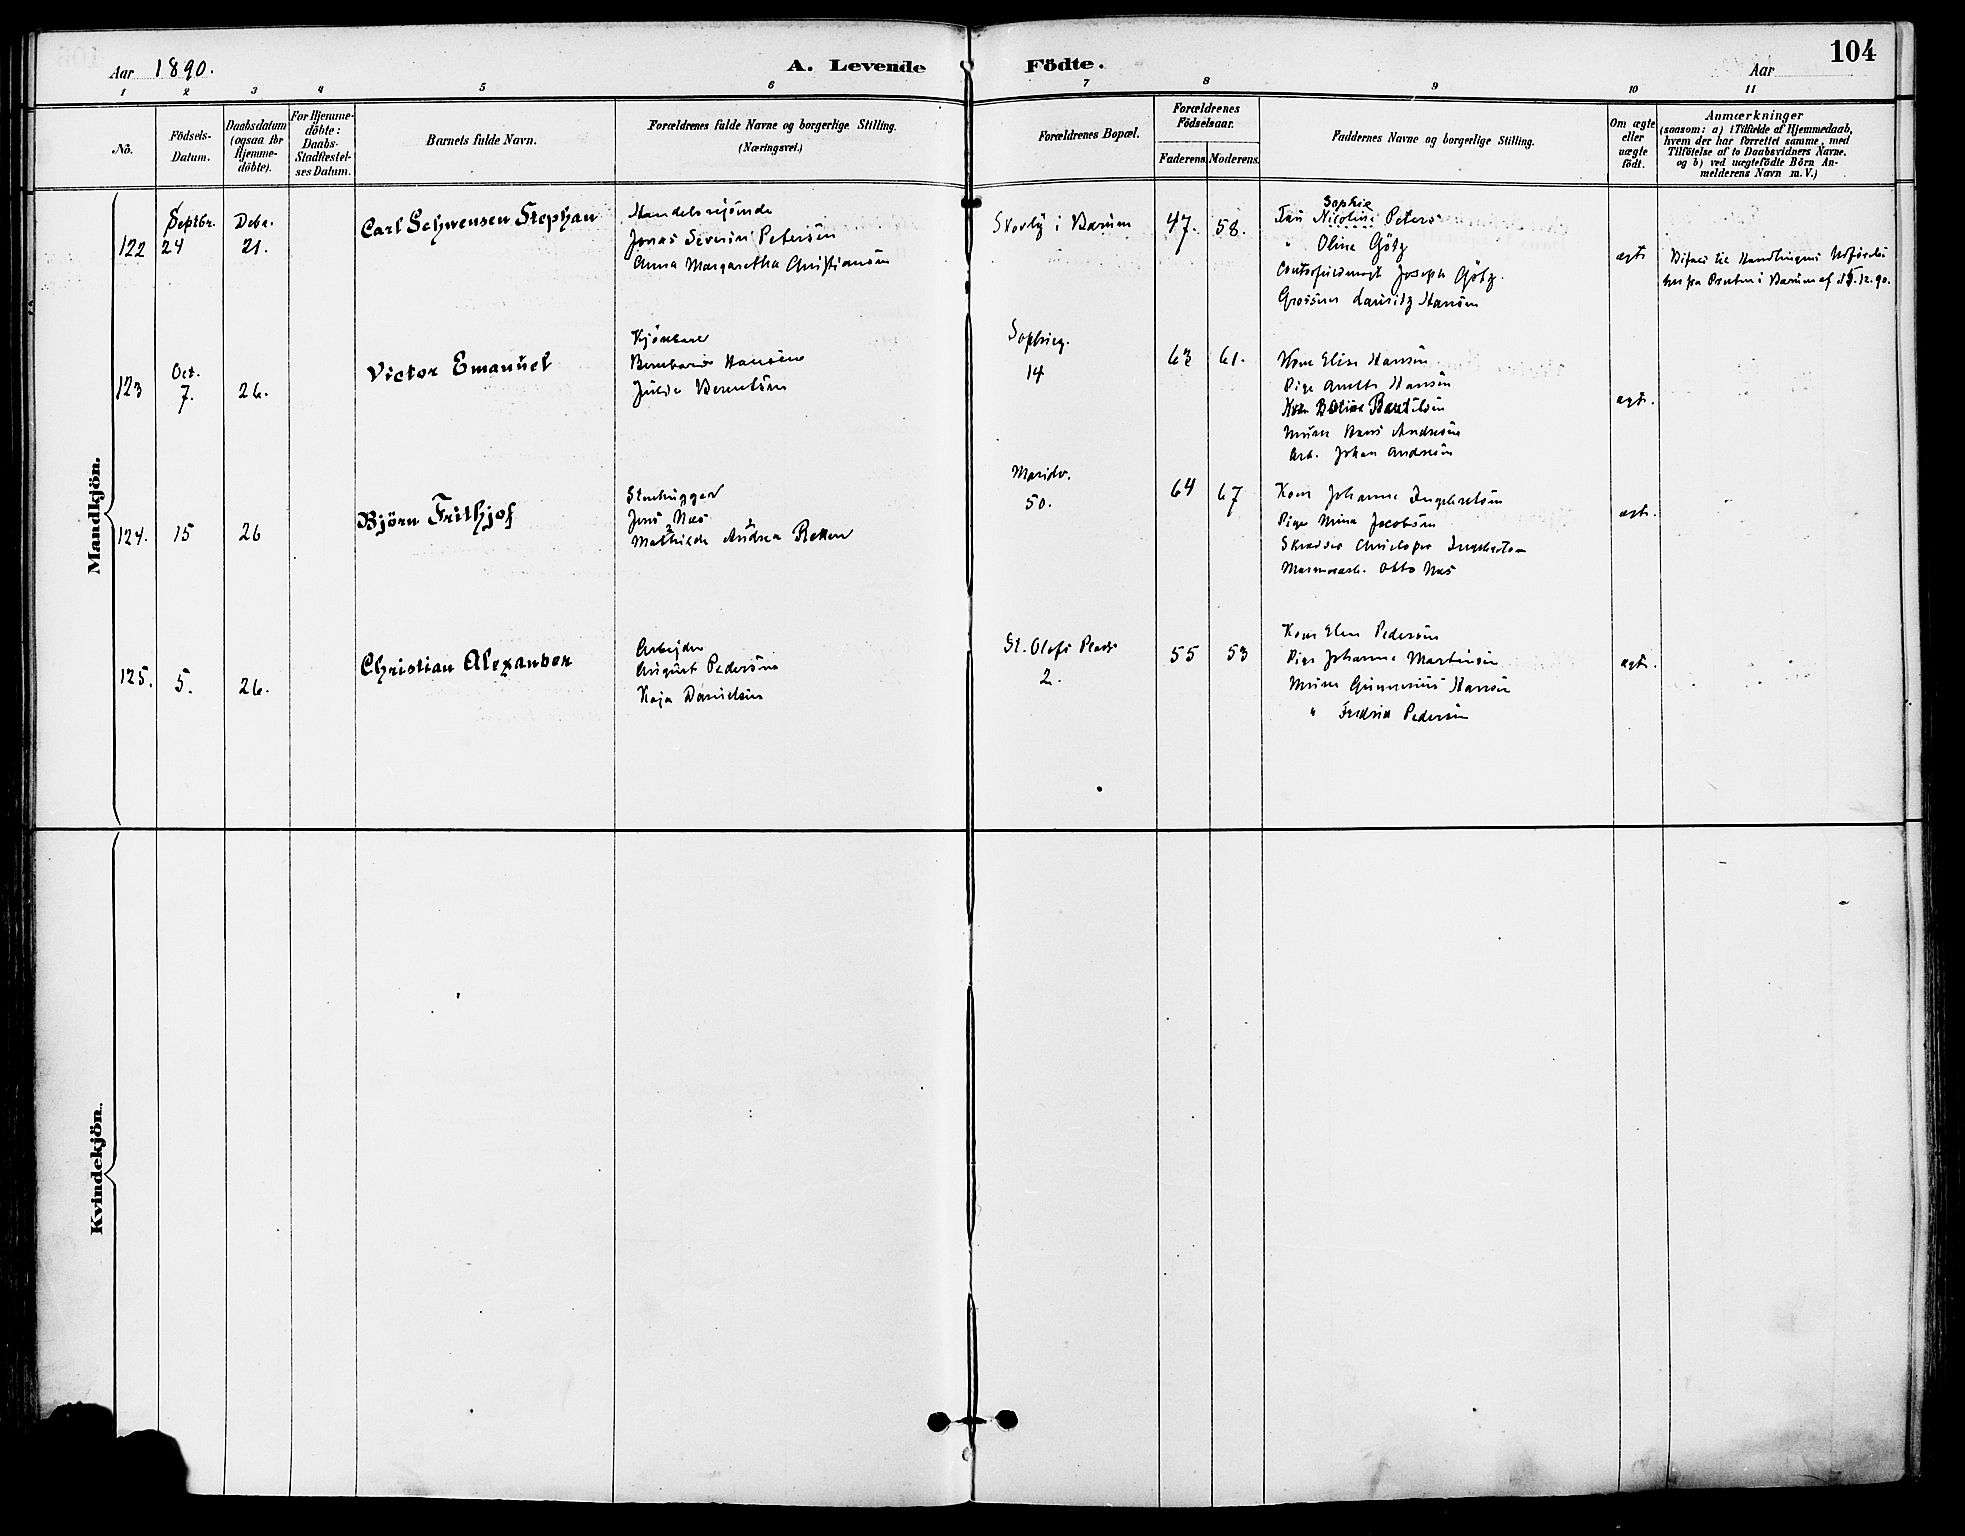 Aar 1890.
A. Levende Födte.
104
Aar
1 2 3 4 5 6 7 8 9 10 11
No.
Födsels-
Datum.
Daabsdatum
(ogsaa for
Hjemme-
döbte).
For Hjemme-
döbte:
Daabs-
Stadfestel-
ses Datum.
Barnets fulde Navn.
Forældrenes fulde Navne og borgerlige Stilling.
(Næringsvei.)
Forældrenes Bopæl.
Forældrenes
Födselsaar.
Faderens. Moderens.
Faddernes Navne og borgerlige Stilling.
Om ægte
eller
uægte
födt.
Anmærkninger
(saasom: a) i Tilfælde af Hjemmedaab,
hvem der har forrettet samme, med
Tilföielse af to Daabsvidners Navne.
og b) ved uægtefödte Börn An-
melderens Navn m. V.)
Mandkjön.
122
Septbr.
24
Debr.
21.
Carl Schwensen Stephan
Handelsreisende
Jonas Severin Petersen
Anna Margaretha Christiansen
i Bærum
47. 58.
Sophie
Fru Nicoline Peters
" Oline Götz
Joseph Götz.
Grosserer Lauritz Hansen
ægte
Bifald til Handlingens Udförelse
fra Præsten i Bærum af 12.90.
123
Oct.
7.
26.
Victor Emanuel
Bernhard Hansen
Julie Berentsen
Sophieg.
14
63 61.
Kone Elise Hansen
Pige Anette Hansen
Kone
Murer Hans Andresen
Arb. Johan Andresen
ægte.
124.
15
26
Björn Frithjof
Stenhugger
Jens Næs
Mathilde Andrea Bekken
Maridv.
50.
64 67
Kone Johanne Ingebretsen
Pige Mina Jacobsen
Skrædder Christopher Ingebretsen
Marmorarb. Otto Næs
ægte.
125.
5.
26.
Christian Alexander
Arbejder
August Pedersen
Kaja Danielsen
St. Olafs Plads
2.
55 53
Kone Elen Pedersen
Pige Johanne Martinsen
Murer Gunnerius Hansen
" Fredrik Pedersen
ægte.
Kvindekjön.